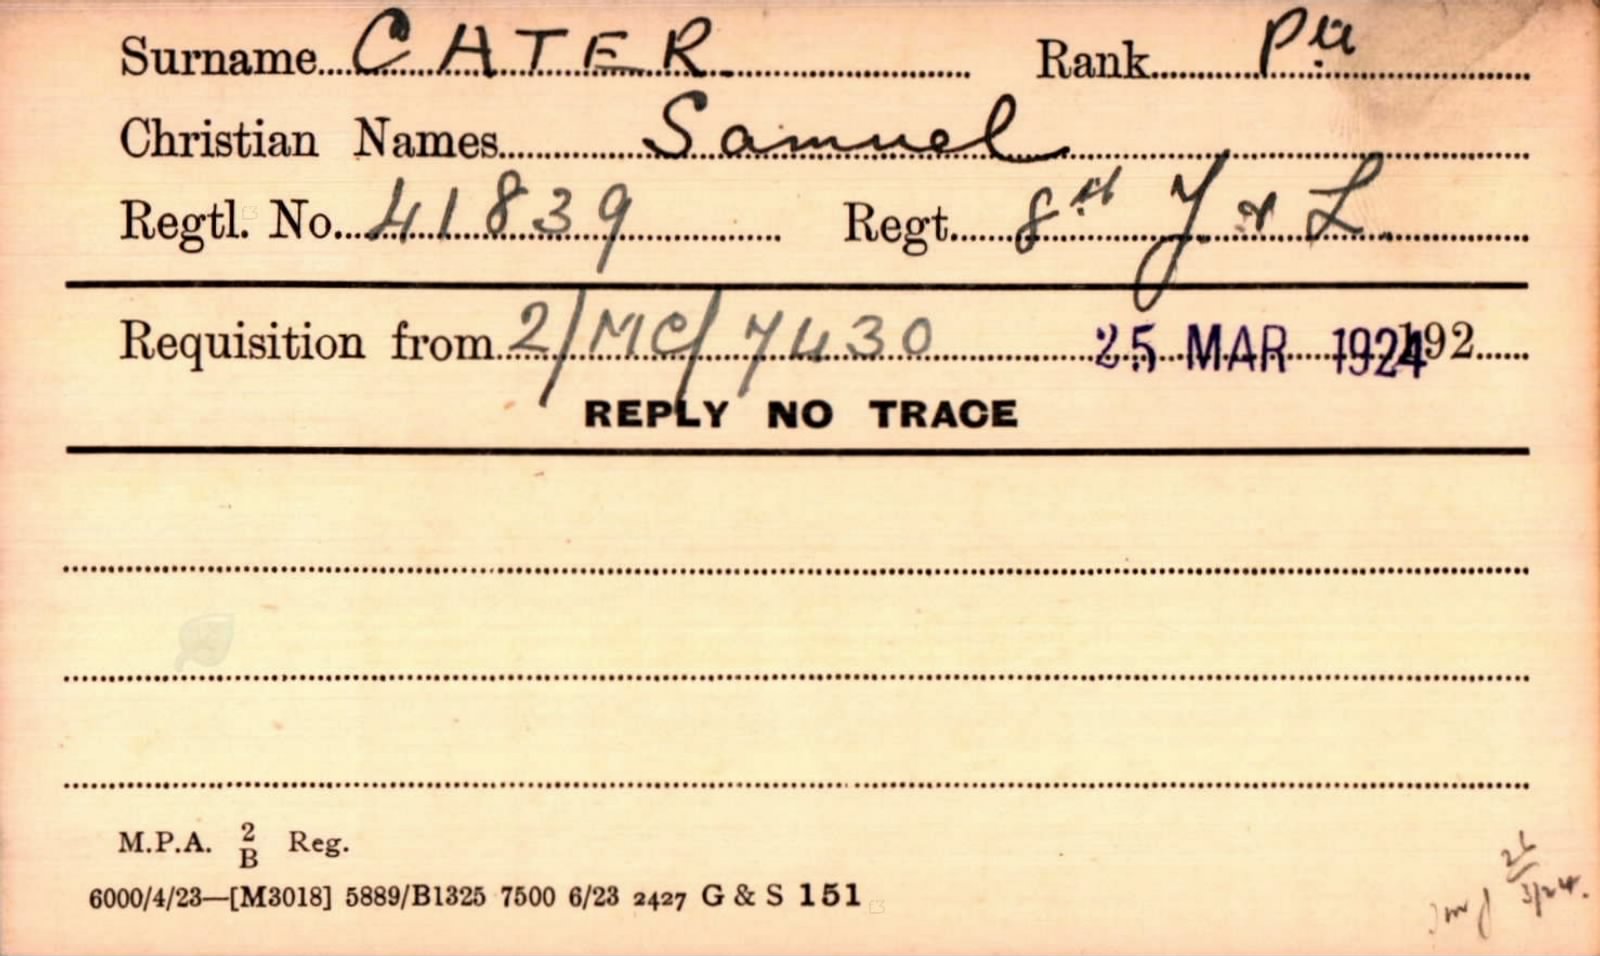 Surname CATER Rank Pte
Christian Names Samuel
Regtl. No. 41839 Regt. 8th Y & L.
Requisition from 2/MC/7430 25 MAR 1924 192
REPLY NO TRACE
M.P.A. 2/B Reg.
6000/4/23—[M3018] 5889/B1325 7500 6/23 2427 G & S 151
26
3/24.